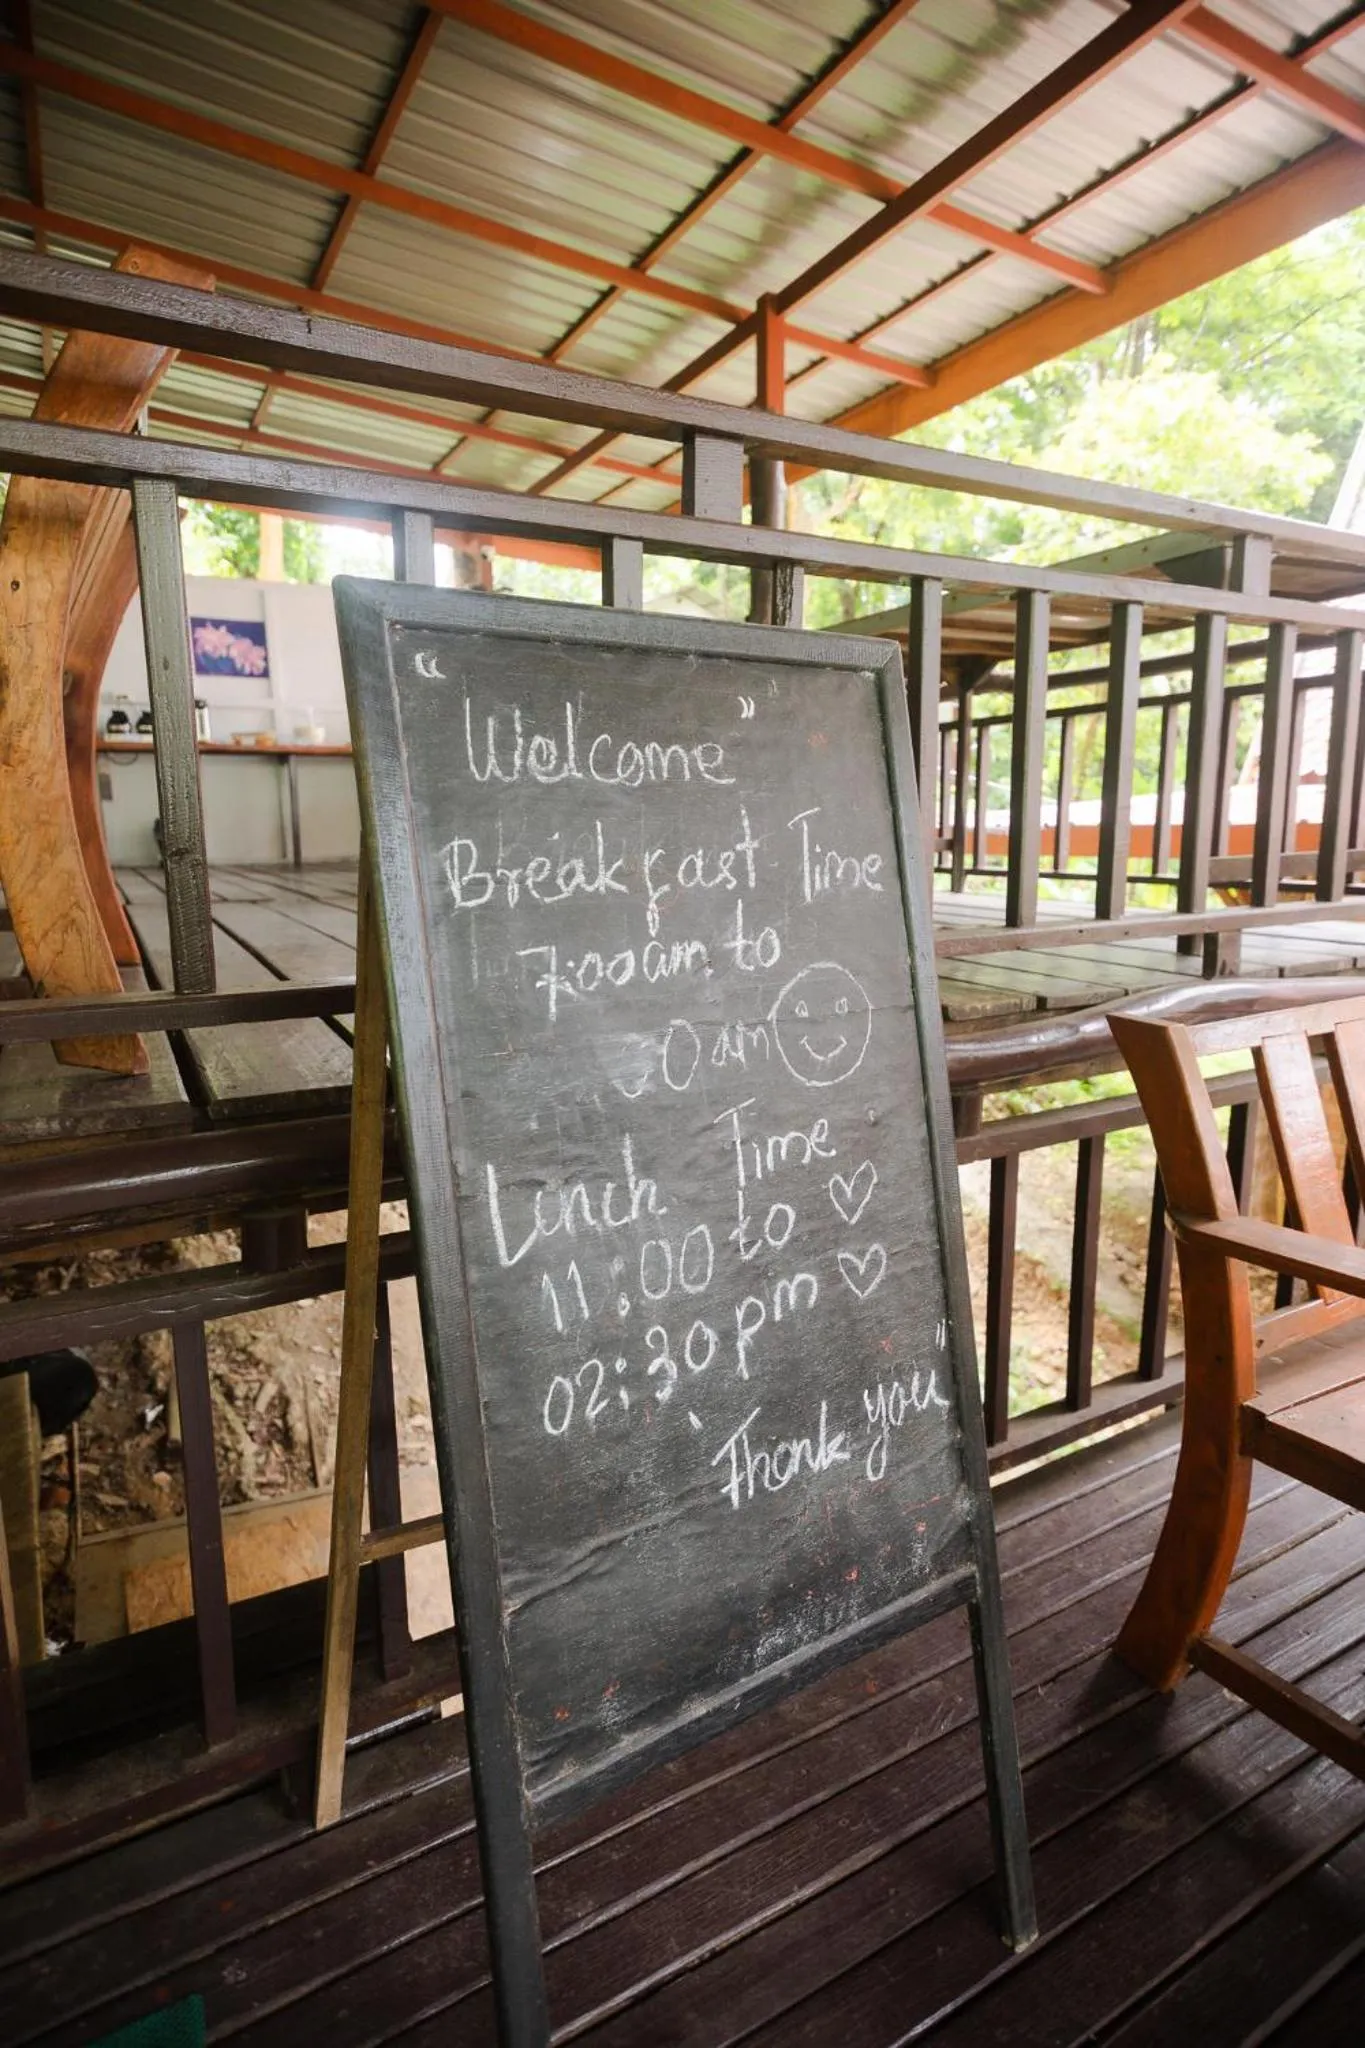 “ Welcome ”
Breakfast Time
7:00am to
0am
Lunch Time
11:00 to
02:30pm
Thank you"